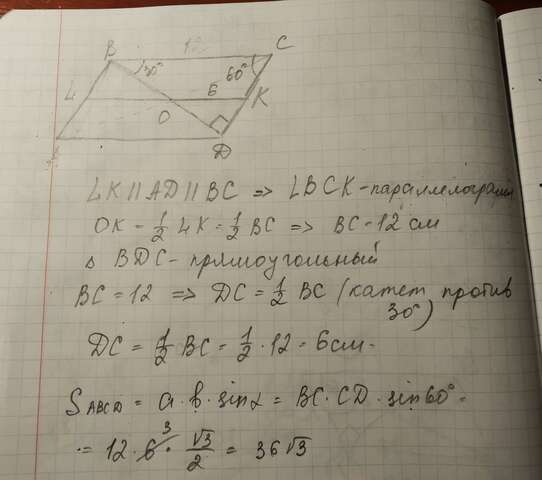 B 12 C
30° 60°
L 6 K
O
D
LK || AD || BC => LBCK - параллелограмм
OK = 1/2 LK = 1/2 BC => BC = 12 см
Δ BDC - прямоугольный
BC = 12 => DC = 1/2 BC (катет против
30°)
DC = 1/2 BC = 1/2 · 12 = 6 см.
S ABCD = a · b · sin α = BC · CD · sin 60° =
= 12 · 6 3 · √3/2 = 36 √3